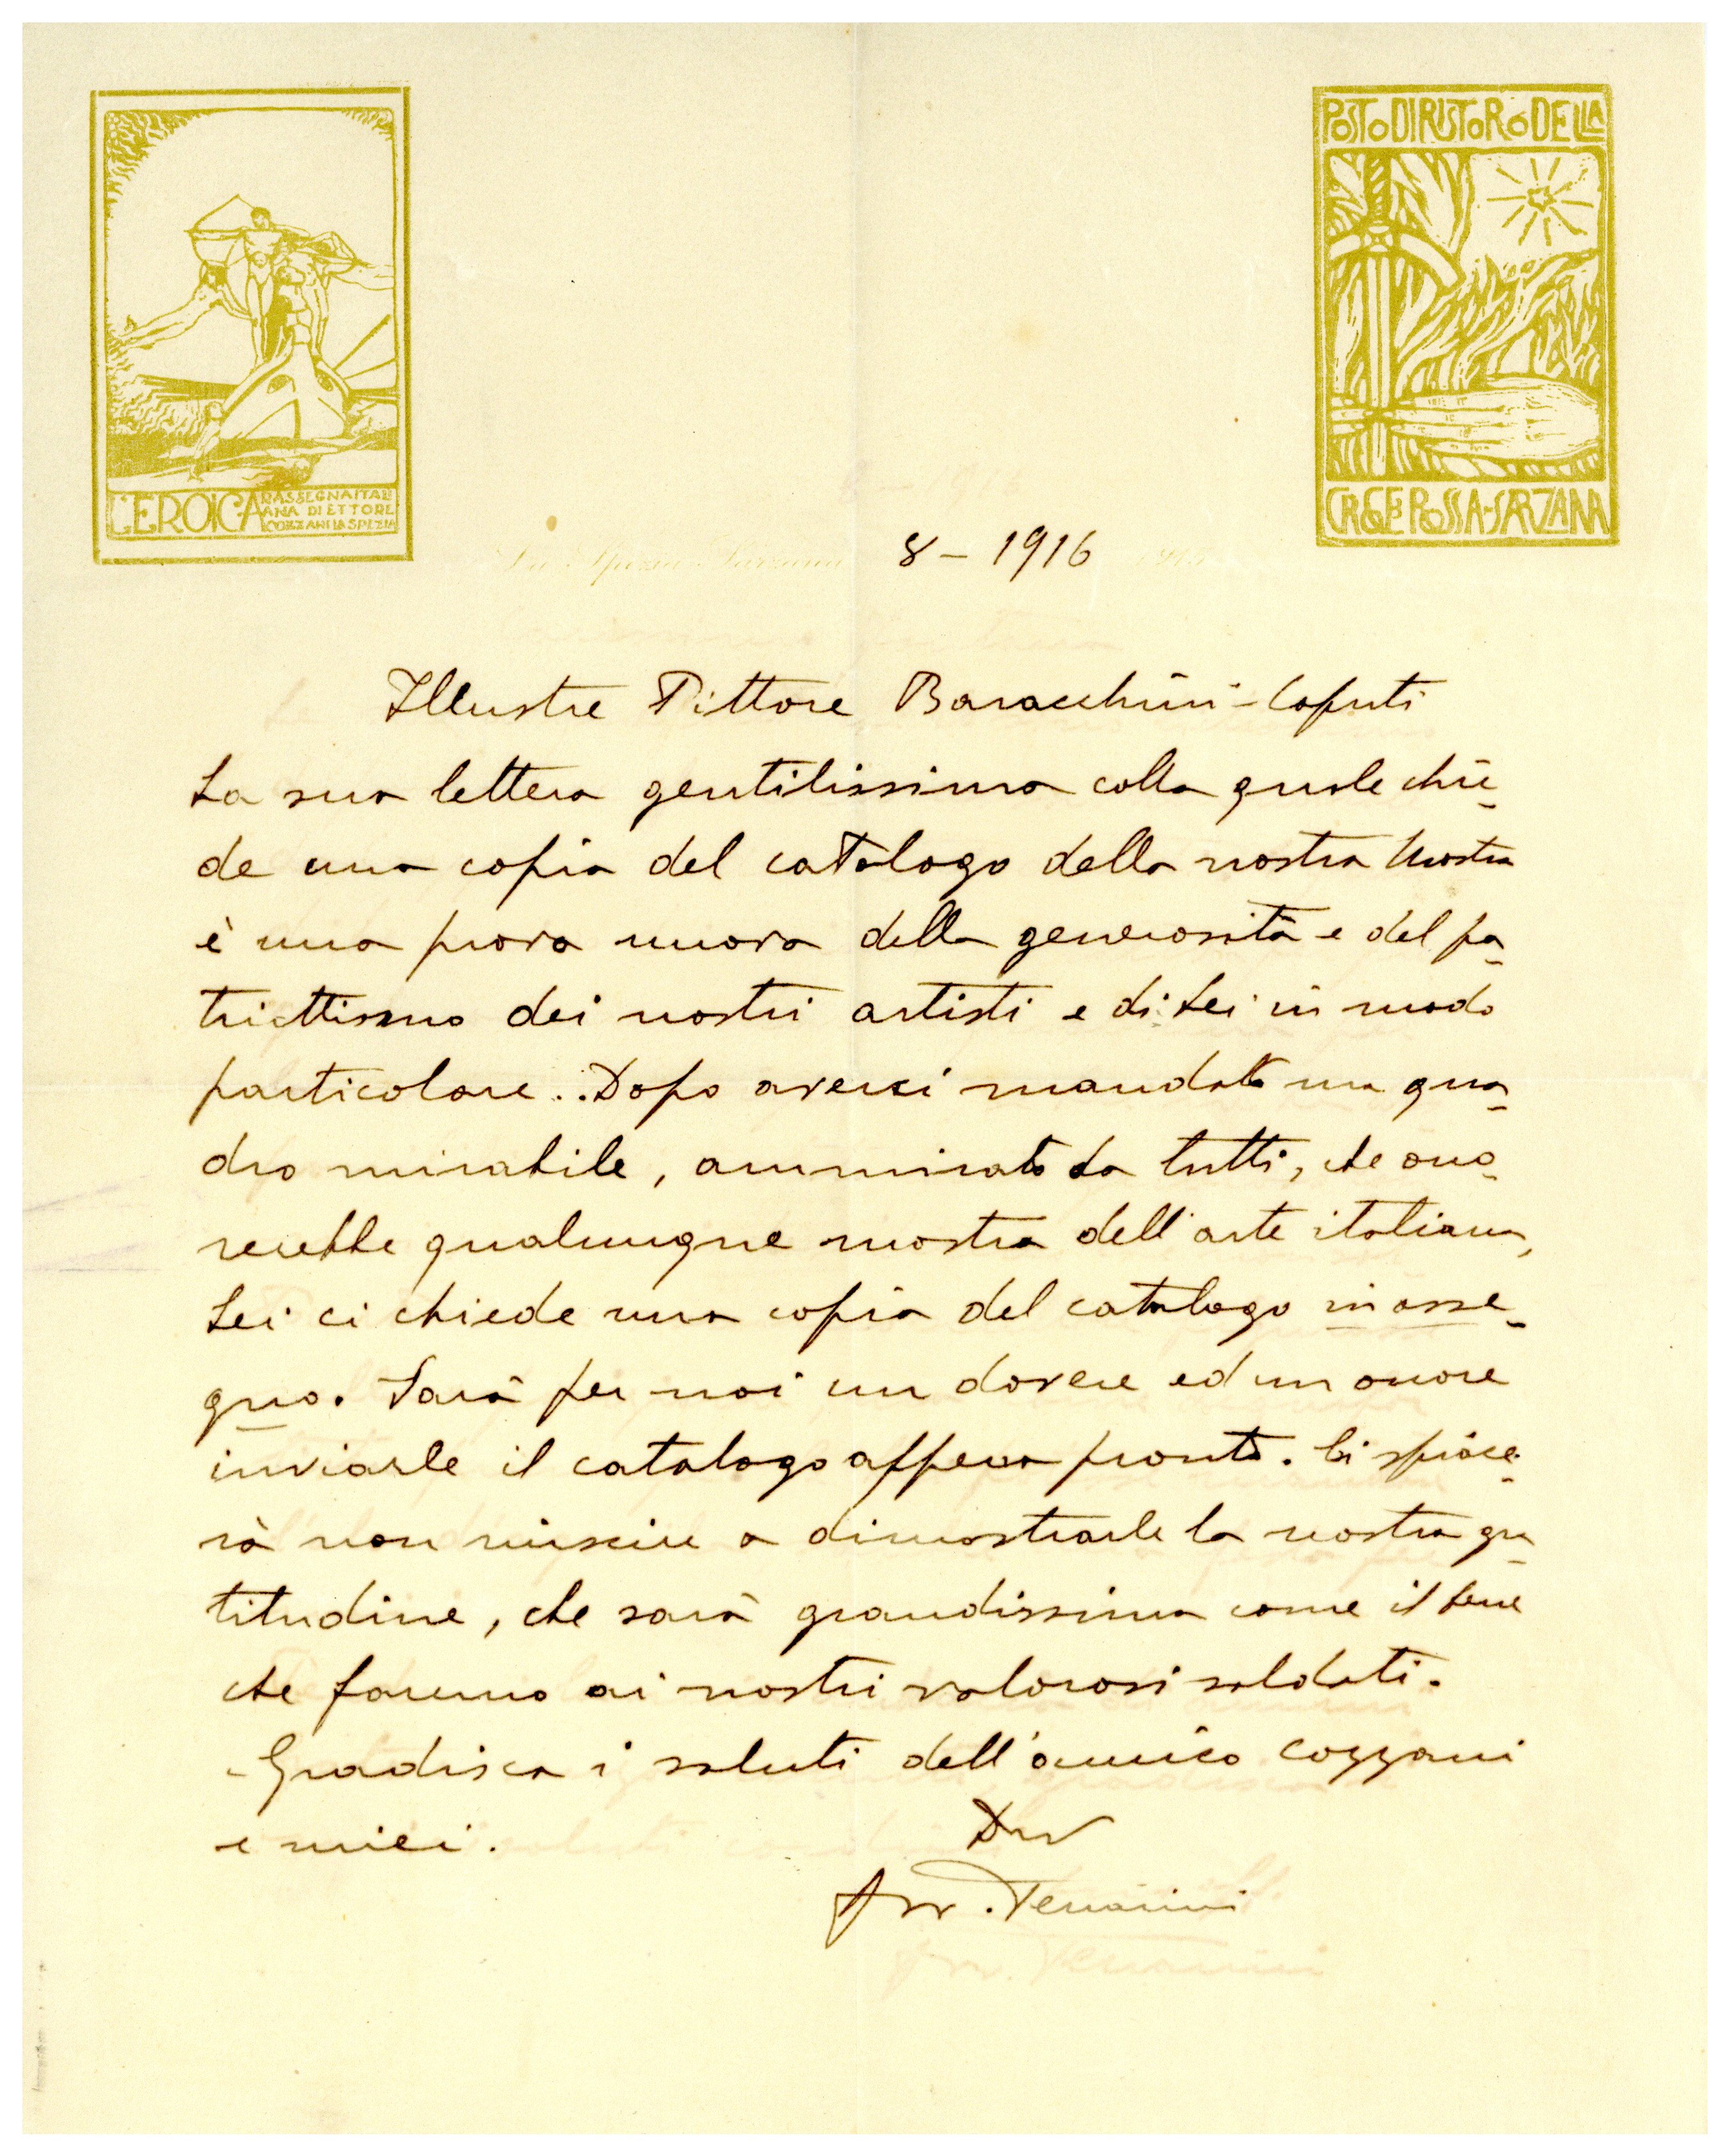 L'EROICA RASSEGNA ITALI
ANA DI ETTORE
COZZANI LA SPEZIA
POSTO DI RISTORO DELLA
CROCE ROSSA - SARZANA
La Spezia - Sarzana 8 - 1916
Illustre Pittore Baracchini-Caputi
La sua lettera gentilissima colla quale chie-
de una copia del catalogo della nostra Mostra
è una prova nuova della generosità e del pa-
triottismo dei nostri artisti e di Lei in modo
particolare... Dopo averci mandato un qua-
dro mirabile, ammirato da tutti, che ono-
rerebbe qualunque mostra dell'arte italiana,
Lei ci chiede una copia del catalogo in asse-
gno. Sarà per noi un dovere ed un onore
inviarle il catalogo appena pronto. Ci spiace-
rà non riuscire a dimostrarle la nostra gra-
titudine, che sarà grandissima come il bene
che faremo ai nostri valorosi soldati.
Gradisca i saluti dell'amico Cozzani
e miei.
Avv.